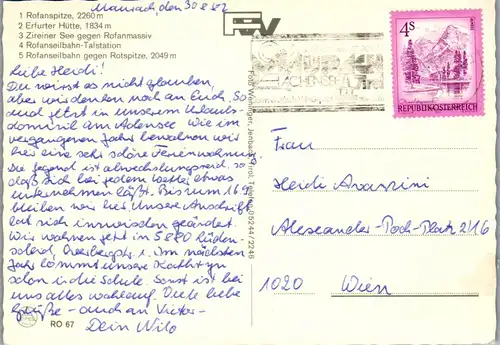 Maurach, den 30.8.82
1 Rofanspitze, 2260 m
2 Erfurter Hütte, 1834 m
3 Zireiner See gegen Rofanmassiv
4 Rofanseilbahn-Talstation
5 Rofanseilbahn gegen Rotspitze, 2049 m
Liebe Heidi!
Du wirst es nicht glauben,
aber wir denken noch an Euch. So
sind jetzt in unserem Urlaubs-
domizil am Achensee. Wie im
vergangenen Jahr bewohnen wir
hier eine sehr schöne Ferienwohnung
Die Gegend ist abwechslungsreich, so
daß sich bei jedem Wetter etwas
unternehmen läßt. Bis zum 16.9.
bleiben wir hier. Unsere Anschrift
hat sich inzwischen geändert.
Wir wohnen jetzt in 5880 Lüden-
scheid, 1. Im nächsten
Jahr kommt unsere Kathryn
schon in die Schule. Sonst ist bei
uns alles wohlauf. Viele liebe
Grüße - auch an Victor -
Dein Wilo
RO 67
ACHENSEE
TIROL
4S
REPUBLIK ÖSTERREICH
Frau
Heidi
Alexander-Poch-Platz 2/16
1020 Wien